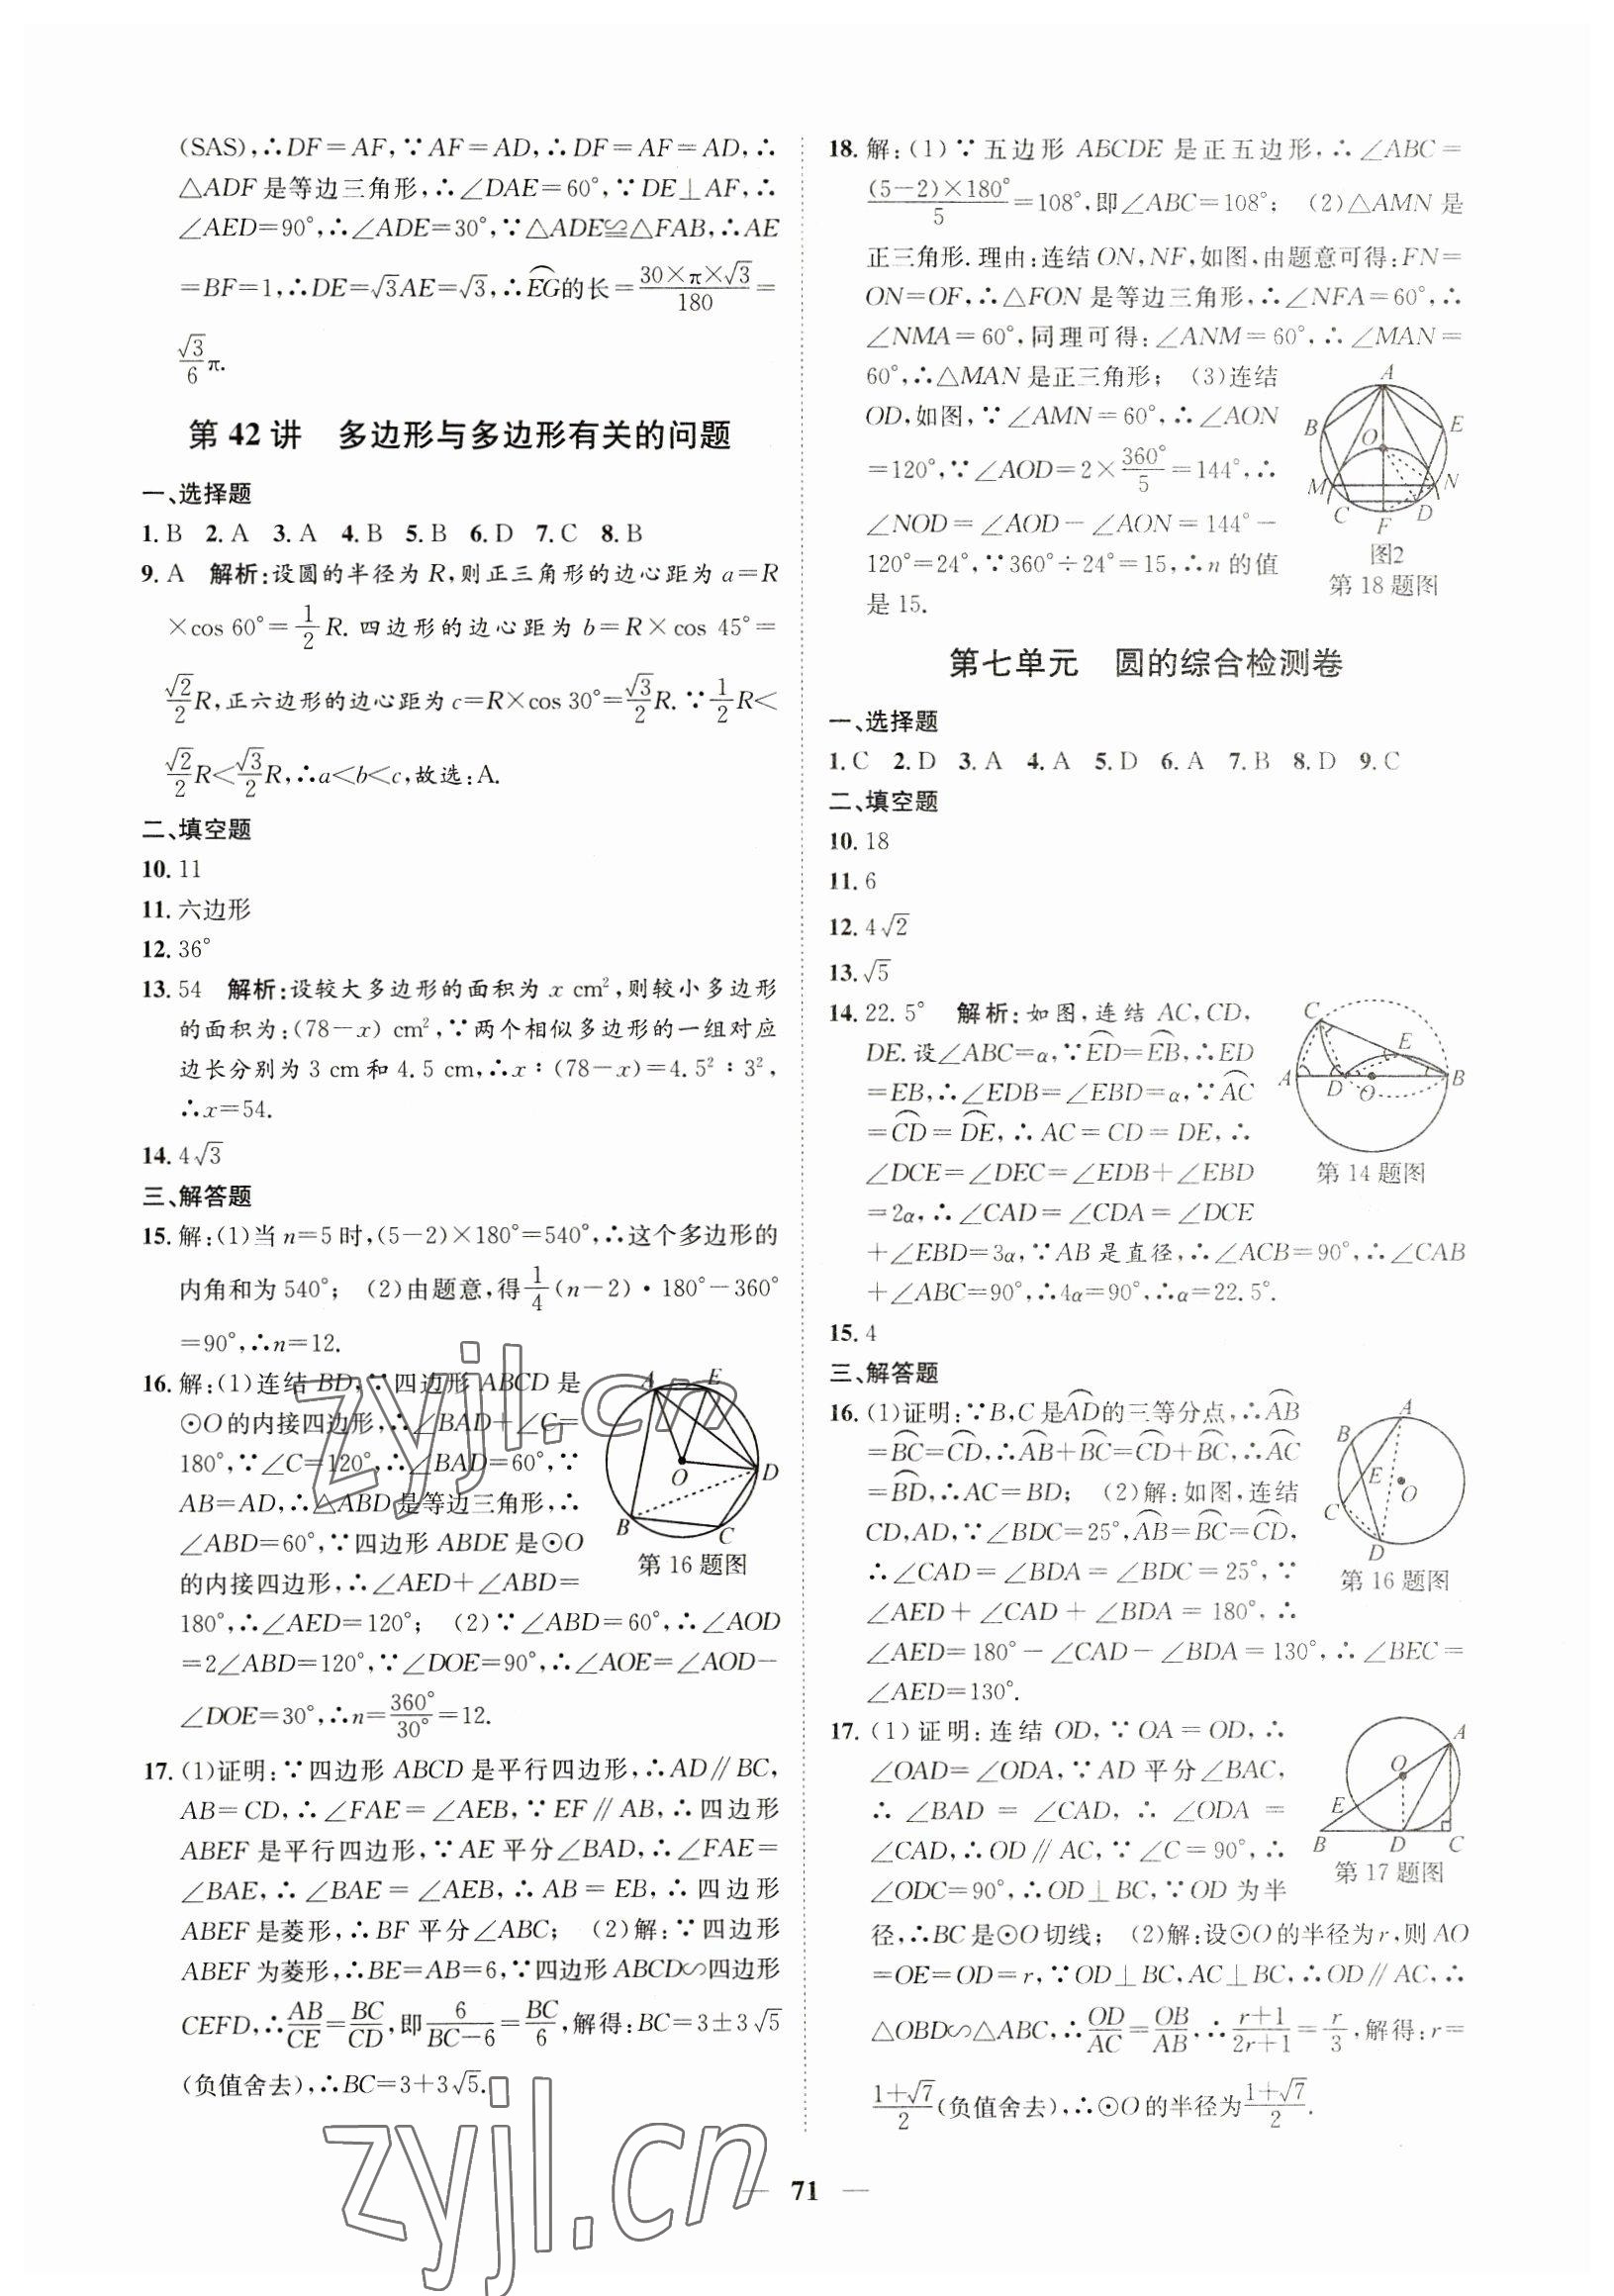 (SAS),∴DF=AF,∵AF=AD,∴DF=AF=AD,∴
△ADF是等边三角形,∴∠DAE=60°,∵DE⊥AF,∴
∠AED=90°,∴∠ADE=30°,∵△ADE≌△FAB,∴AE
=BF=1,∴DE=√3AE=√3,∴EG⌒的长=(30×π×√3)/180=
√3/6 π.
第 42 讲 多边形与多边形有关的问题
一、选择题
1. B 2. A 3. A 4. B 5. B 6. D 7. C 8. B
9. A 解析:设圆的半径为 R,则正三角形的边心距为 a=R
×cos 60°=1/2 R. 四边形的边心距为 b=R×cos 45°=
√2/2 R,正六边形的边心距为 c=R×cos 30°=√3/2 R. ∵1/2 R<
√2/2 R<√3/2 R,∴a<b<c,故选:A.
二、填空题
10. 11
11. 六边形
12. 36°
13. 54 解析:设较大多边形的面积为 x cm²,则较小多边形
的面积为:(78-x) cm²,∵两个相似多边形的一组对应
边长分别为 3 cm和 4. 5 cm,∴x∶(78-x)=4. 5²∶3²,
∴x=54.
14. 4√3
三、解答题
15. 解:(1)当 n=5 时,(5-2)×180°=540°,∴这个多边形的
内角和为 540°; (2)由题意,得1/4(n-2)·180°-360°
=90°,∴n=12.
16. 解:(1)连结 BD,∵四边形 ABCD 是
⊙O的内接四边形,∴∠BAD+∠C=
180°,∵∠C=120°,∴∠BAD=60°,∵
AB=AD,∴△ABD是等边三角形,∴
∠ABD=60°,∵四边形 ABDE 是⊙O
的内接四边形,∴∠AED+∠ABD=
A E O D B C
第 16 题图
180°,∴∠AED=120°; (2)∵∠ABD=60°,∴∠AOD
=2∠ABD=120°,∵∠DOE=90°,∴∠AOE=∠AOD-
∠DOE=30°,∴n=360°/30°=12.
17. (1)证明:∵四边形 ABCD 是平行四边形,∴AD∥BC,
AB=CD,∴∠FAE=∠AEB,∵EF∥AB,∴四边形
ABEF 是平行四边形,∵AE 平分∠BAD,∴∠FAE=
∠BAE,∴∠BAE=∠AEB,∴AB=EB,∴四边形
ABEF是菱形,∴BF 平分∠ABC; (2)解:∵四边形
ABEF 为菱形,∴BE=AB=6,∵四边形 ABCD∽四边形
CEFD,∴AB/CE=BC/CD,即6/(BC-6)=BC/6,解得:BC=3±3√5
(负值舍去),∴BC=3+3√5.
18. 解:(1)∵五边形 ABCDE 是正五边形,∴∠ABC=
((5-2)×180°)/5=108°,即∠ABC=108°; (2)△AMN 是
正三角形. 理由:连结 ON,NF,如图,由题意可得:FN=
ON=OF,∴△FON 是等边三角形,∴∠NFA=60°,∴
∠NMA=60°,同理可得:∠ANM=60°,∴∠MAN=
60°,∴△MAN 是正三角形; (3)连结
OD,如图,∵∠AMN=60°,∴∠AON
=120°,∵∠AOD=2×360°/5=144°,∴
∠NOD=∠AOD-∠AON=144°-
120°=24°,∵360°÷24°=15,∴n 的值
是 15.
A B E O M N C F D
图2
第 18 题图
第七单元 圆的综合检测卷
一、选择题
1. C 2. D 3. A 4. A 5. D 6. A 7. B 8. D 9. C
二、填空题
10. 18
11. 6
12. 4√2
13. √5
14. 22. 5° 解析:如图,连结 AC,CD,
DE. 设∠ABC=α,∵ED⌒=EB⌒,∴ED
=EB,∴∠EDB=∠EBD=α,∵AC⌒
=CD⌒=DE⌒,∴AC=CD=DE,∴
∠DCE=∠DEC=∠EDB+∠EBD
=2α,∴∠CAD=∠CDA=∠DCE
C E A D O B
第 14 题图
+∠EBD=3α,∵AB 是直径,∴∠ACB=90°,∴∠CAB
+∠ABC=90°,∴4α=90°,∴α=22. 5°.
15. 4
三、解答题
16. (1)证明:∵B,C是AD⌒的三等分点,∴AB⌒
=BC⌒=CD⌒,∴AB⌒+BC⌒=CD⌒+BC⌒,∴AC⌒
=BD⌒,∴AC=BD; (2)解:如图,连结
CD,AD,∵∠BDC=25°,AB⌒=BC⌒=CD⌒,
∴∠CAD=∠BDA=∠BDC=25°,∵
∠AED+∠CAD+∠BDA=180°,∴
A B E O C D
第 16 题图
∠AED=180°-∠CAD-∠BDA=130°,∴∠BEC=
∠AED=130°.
17. (1)证明:连结 OD,∵OA=OD,∴
∠OAD=∠ODA,∵AD 平分∠BAC,
∴∠BAD=∠CAD,∴∠ODA=
∠CAD,∴OD∥AC,∵∠C=90°,∴
∠ODC=90°,∴OD⊥BC,∵OD 为半
A O E B D C
第 17 题图
径,∴BC是⊙O切线; (2)解:设⊙O的半径为r,则 AO
=OE=OD=r,∵OD⊥BC,AC⊥BC,∴OD∥AC,∴
△OBD∽△ABC,∴OD/AC=OB/AB,∴(r+1)/(2r+1)=r/3,解得:r=
(1+√7)/2(负值舍去),∴⊙O的半径为(1+√7)/2.
71
zyjl.cn
zyjl.cn